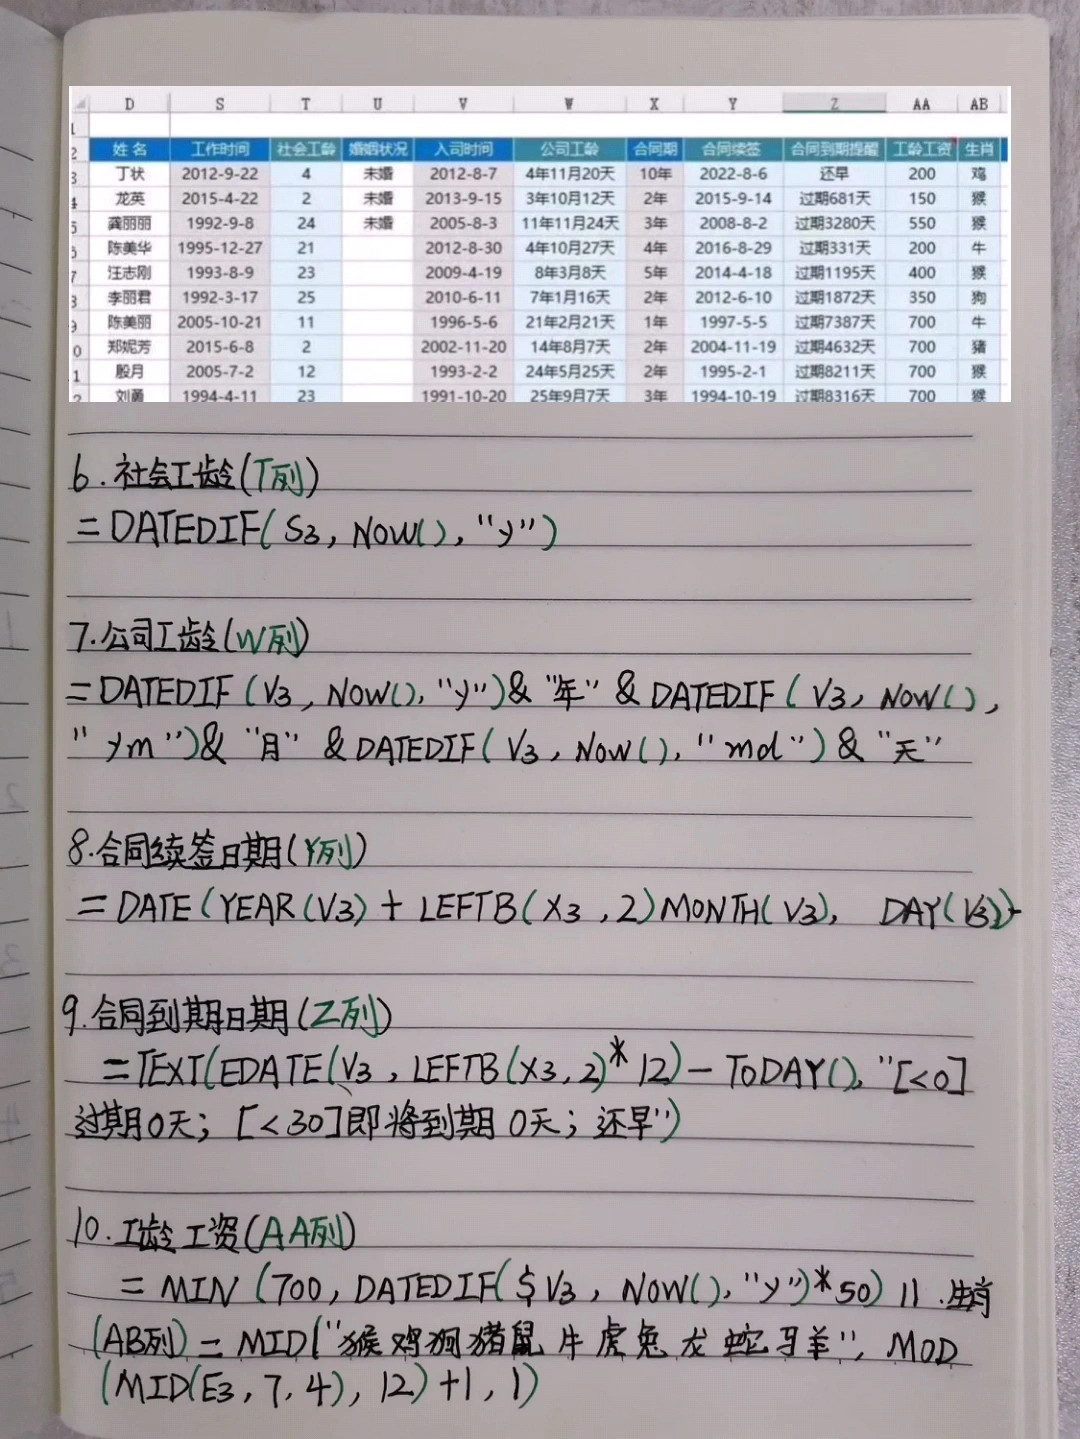 D S T U V W X Y Z AA AB
1
2 姓名 工作时间 社会工龄 婚姻状况 入司时间 公司工龄 合同期 合同续签 合同到期提醒 工龄工资 生肖
3 丁状 2012-9-22 4 未婚 2012-8-7 4年11月20天 10年 2022-8-6 还早 200 鸡
4 龙英 2015-4-22 2 未婚 2013-9-15 3年10月12天 2年 2015-9-14 过期681天 150 猴
5 龚丽丽 1992-9-8 24 未婚 2005-8-3 11年11月24天 3年 2008-8-2 过期3280天 550 猴
陈美华 1995-12-27 21 2012-8-30 4年10月27天 4年 2016-8-29 过期331天 200 牛
7 汪志刚 1993-8-9 23 2009-4-19 8年3月8天 5年 2014-4-18 过期1195天 400 猴
李丽君 1992-3-17 25 2010-6-11 7年1月16天 2年 2012-6-10 过期1872天 350 狗
陈美丽 2005-10-21 11 1996-5-6 21年2月21天 1年 1997-5-5 过期7387天 700 牛
0 郑妮芳 2015-6-8 2 2002-11-20 14年8月7天 2年 2004-11-19 过期4632天 700 猪
1 殷月 2005-7-2 12 1993-2-2 24年5月25天 2年 1995-2-1 过期8211天 700 猴
2 刘勇 1994-4-11 23 1991-10-20 25年9月7天 3年 1994-10-19 过期8316天 700 猴
6.社会工龄(T列)
=DATEDIF(S3,NOW(),"y")
7.公司工龄(W列)
=DATEDIF(V3,NOW(),"y")&"年"&DATEDIF(V3,NOW(),
"ym")&"月"&DATEDIF(V3,NOW(),"md")&"天"
8.合同续签日期(Y列)
=DATE(YEAR(V3)+LEFTB(X3,2)MONTH(V3), DAY(V3))-
9.合同到期日期(Z列)
=TEXT(EDATE(V3,LEFTB(X3,2)*12)-TODAY(),"[<0]
过期0天;[<30]即将到期0天;还早")
10.工龄工资(AA列)
=MIN(700,DATEDIF($V3,NOW(),"y")*50) 11.生肖
(AB列)=MID("猴鸡狗猪鼠牛虎兔龙蛇马羊",MOD
(MID(E3,7,4),12)+1,1)